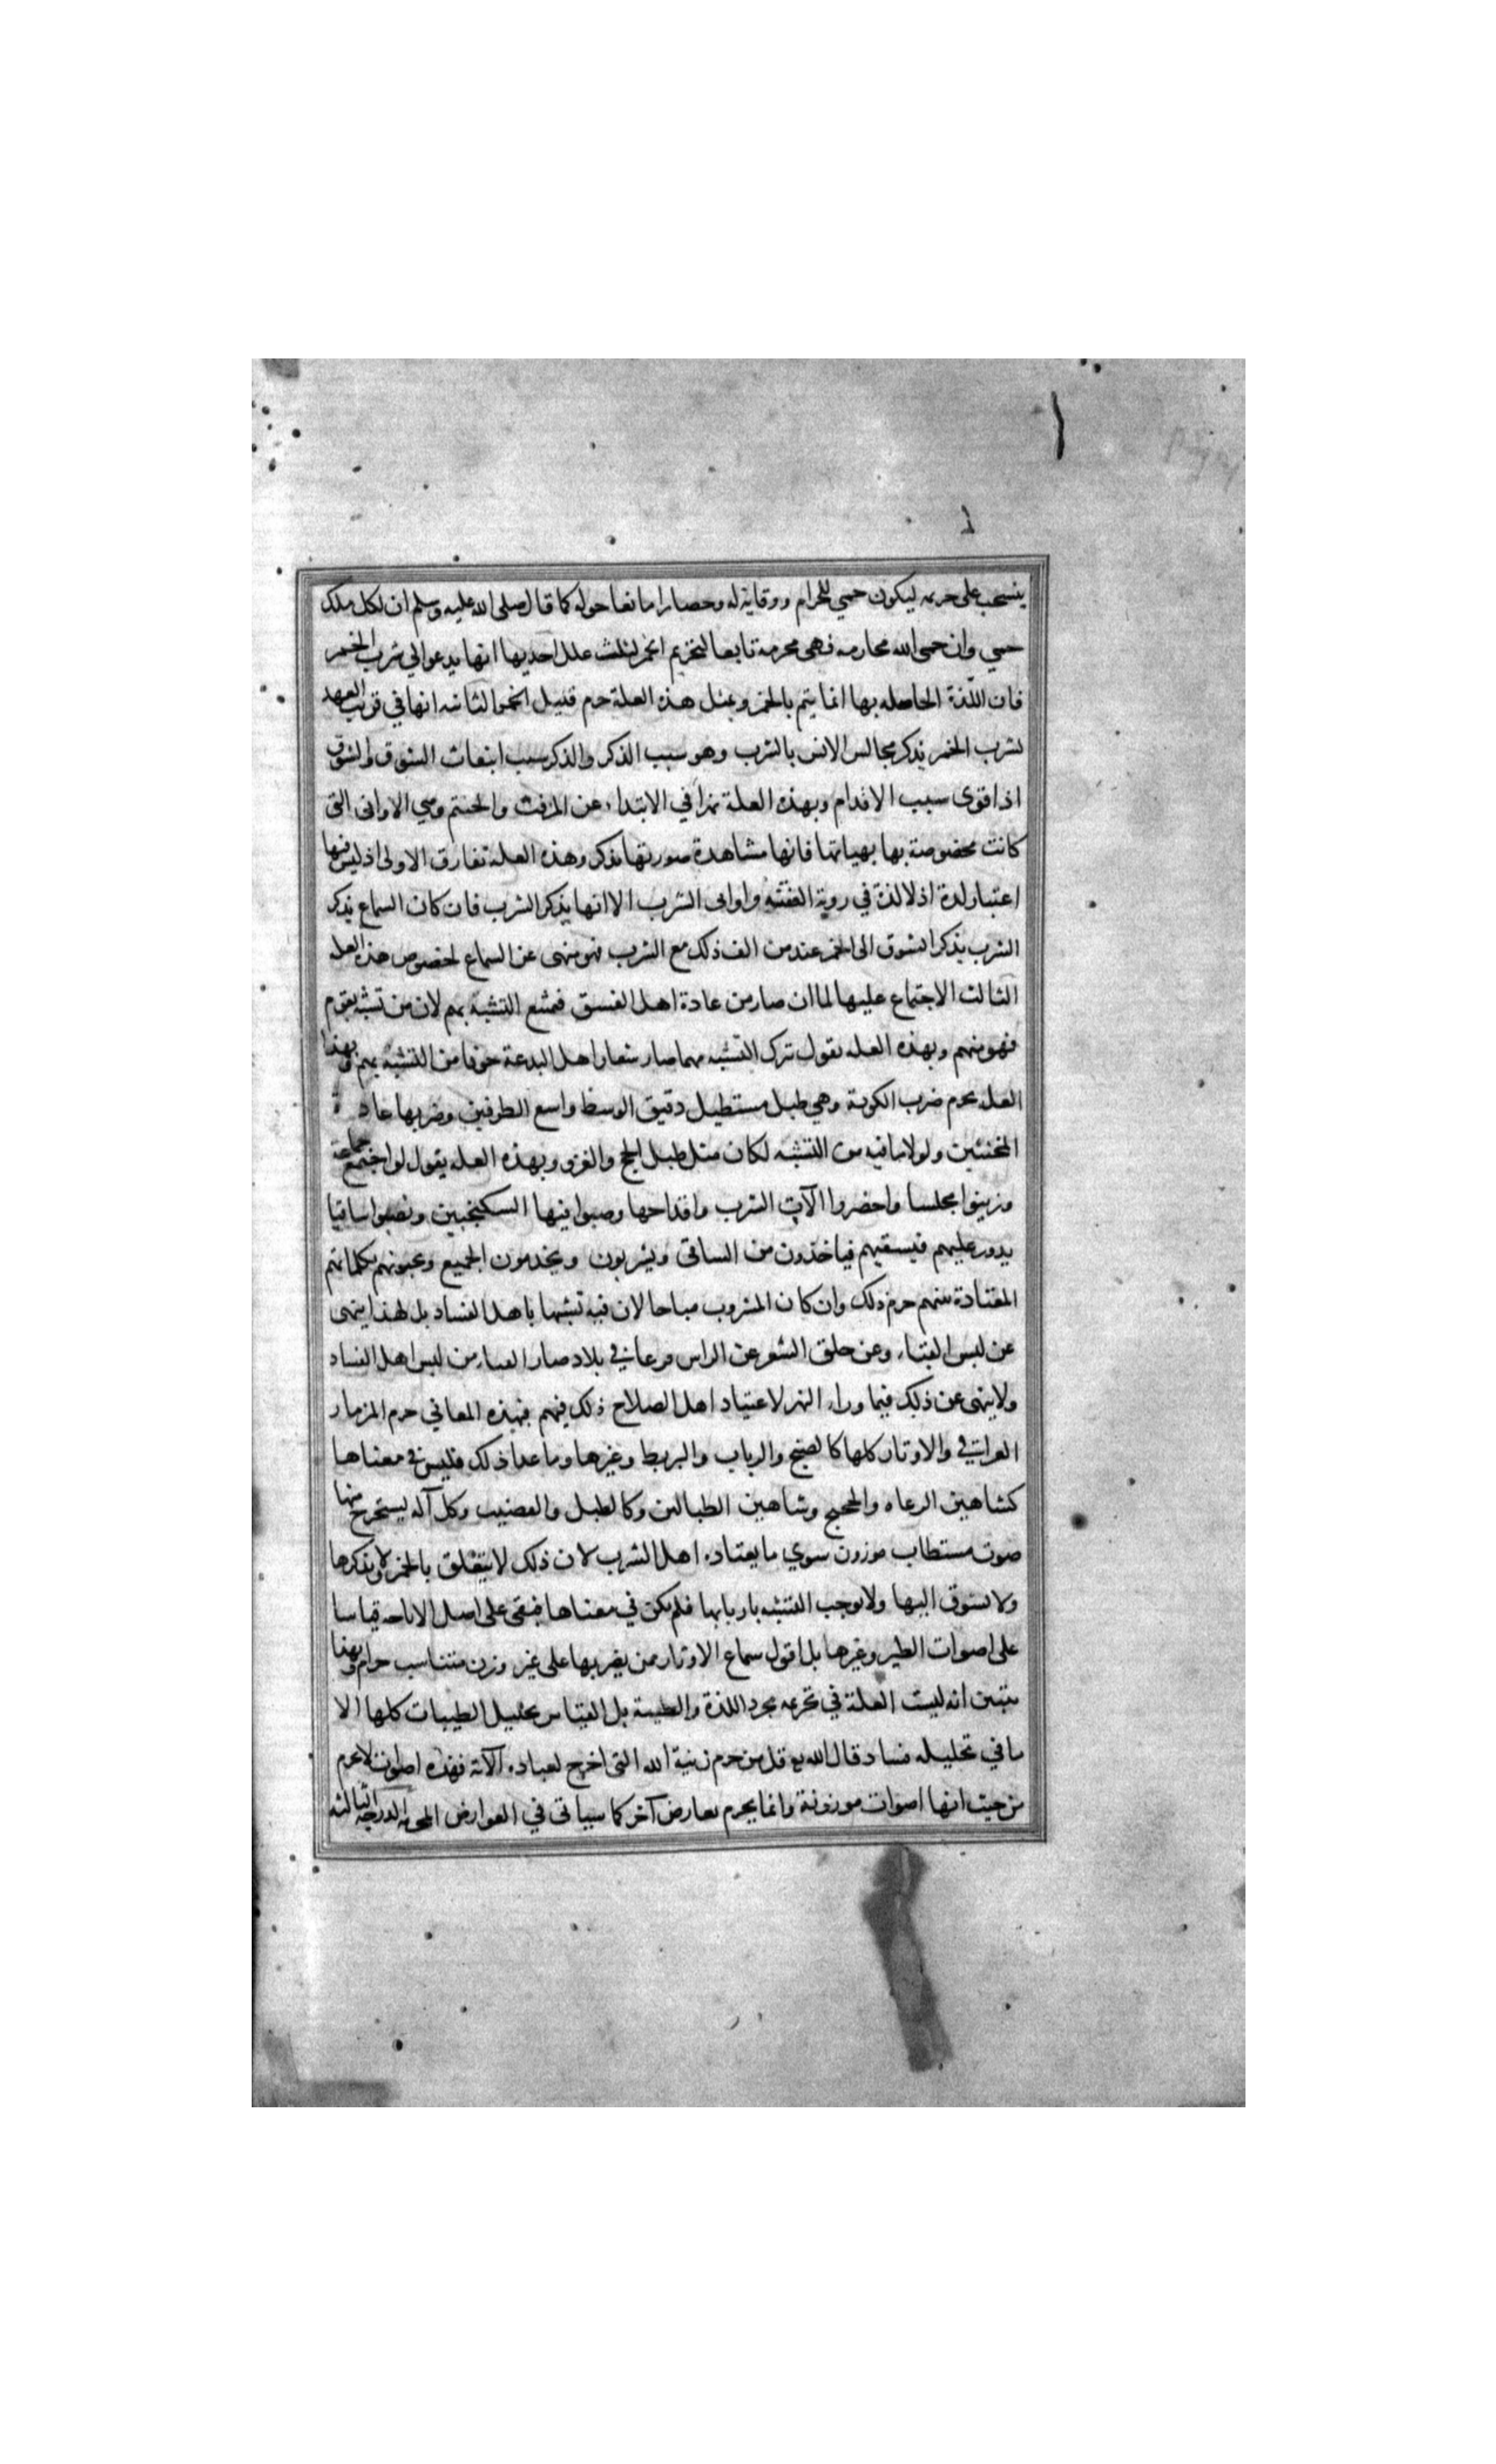 ينسحب على حريمه ليكون حمي للحرام ووقاية له وحصارا مانعا حوله كما قال صلى الله عليه وسلم ان لكل ملك
حمي وان حمى الله محارمه فهي محرمة تابعا لتحريم الخمر لثلث علل احديها انها يدعوالي شرب الخمر
فان اللذة الحاصله بها انما يتم بالخمر وبمثل هذه العلة حرم قليل الخمر الثانيه انها في قريب العهد
لشرب الخمر يذكر مجالس الانس بالشرب وهو سبب الذكر والذكر سبب انبعاث الشوق والشوق
اذا قوى سبب الاقدام وبهذه العلة نهى في الابتداء عن المزفت والحنتم وهي الاواني التي
كانت مخصوصة بها بهياتها فانها مشاهدة صورتها يذكر وهذه العلة تفارق الاولى اذ ليس فيها
اعتبار لذة اذ لا لذة في روية القنينة واواني الشرب الا انها يذكر الشرب فان كان السماع يذكر
الشرب يذكر الشوق الى الخمر عند من الف ذلك مع الشرب فهو منهى عن السماع لخصوص هذه العله
الثالث الاجتماع عليها لما ان صار من عادة اهل الفسق فمنع التشبه بهم لان من تشبه بقوم
فهو منهم وبهذه العله يقول ترك التشبه مهما صار شعارا هل البدعة خوفا من التشبه بهم وبهذا
العله يحرم ضرب الكوبة وهي طبل مستطيل دقيق الوسط واسع الطرفين وضربها عادة
المخنثين ولولا ما فيه من التشبه لكان مثل طبل الحج والغزو وبهذه العله يقول لو اجتمع جماعة
وزينوا مجلسا واحضروا الآت الشرب واقداحها وصبوا فيها السكنجبين ونصبوا ساقيا
يدور عليهم فيسقيهم فياخذون من الساقى ويشربون ويخدمون الجميع ويحيونهم بكلماتهم
المعتادة بينهم حرم ذلك وان كان المشروب مباحا لان فيه تشبها باهل الفساد بل لهذا ينهى
عن لبس القباء وعن حلق الشعر عن الراس فرعا في بلاد صار القباء من لبس اهل الفساد
ولا ينهى عن ذلك فيما وراء النهر لاعتياد اهل الصلاح ذلك فيهم فبهذه المعاني حرم المزمار
العراقي والاوتار كلها كالصنج والرباب والبربط وغيرها وما عدا ذلك فليس في معناها
كشاهين الرعاه والحجيج وشاهين الطبالين وكالطبل والقضيب وكل آله يستخرج منها
صوت مستطاب موزون سوي ما يعتاده اهل الشرب لان ذلك لا يتعلق بالخمر ولا يذكرها
ولا يشوق اليها ولا يوجب التشبه باربابها فلم يكن في معناها فبقى على اصل الاباحه قياسا
على اصوات الطير وغيرها بل اقول سماع الاوتار ممن يضربها على غير وزن متناسب حرام وبهذا
يتبين انه ليست العلة في تحريمه مجرد اللذة والطيبة بل القياس تحليل الطيبات كلها الا
ما في تحليله فساد قال الله تع قل من حرم زينة الله التي اخرج لعباده الآية فهذه اصوات لا يحرم
من حيث انها اصوات موزونة وانما يحرم بعارض آخر كما سياتى في العوارض المحرمة الدرجه الثالثه